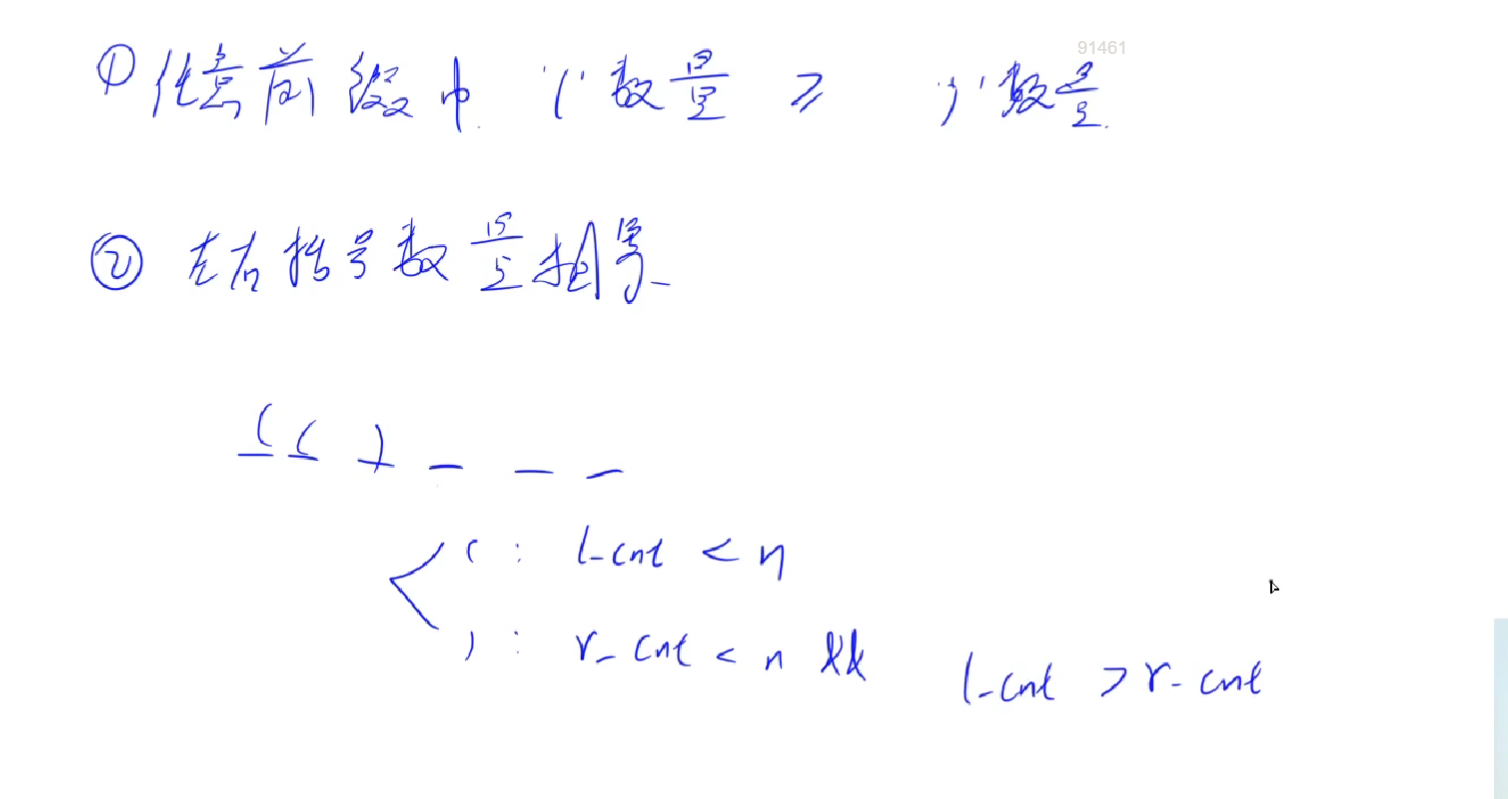 91461
① 任意前缀中 '(' 数量 ≥ ')' 数量.
② 左右括号数量相等
( ( ) _ _ _
( : l_cnt < n
) : r_cnt < n && l_cnt > r_cnt